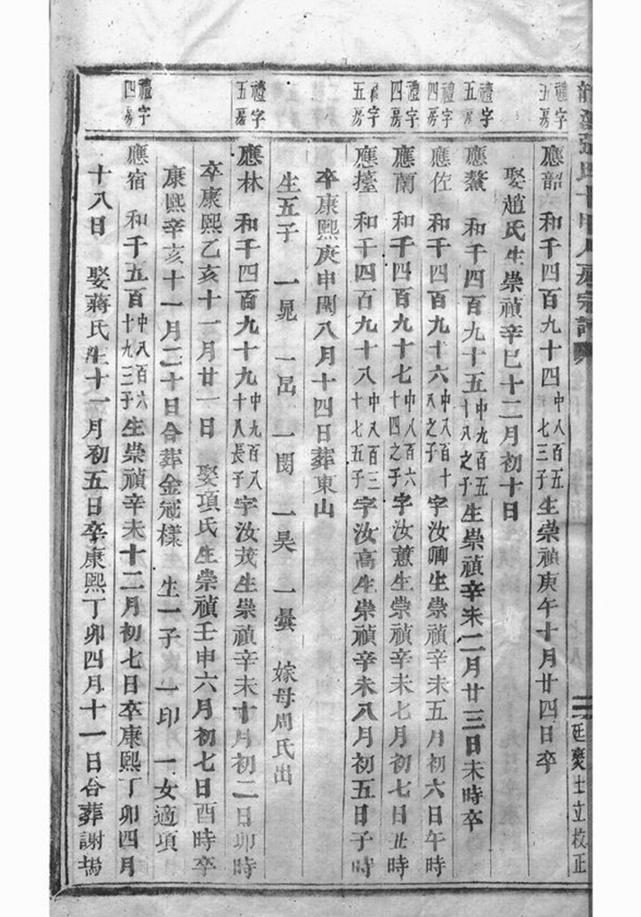 禮字五房
應韶 和千四百九十四中八百五七三子生崇禎庚午十月廿四日卒
娶趙氏生崇禎辛巳十二月初十日
禮字五房
應鰲 和千四百九十五中九百五十八之子生崇禎辛未二月廿三日未時卒
禮字四房
應佐 和千四百九十六中八百十八之子字汝卿生崇禎辛未五月初六日午時
禮字四房
應蘭 和千四百九十七中八百六十四之子字汝蕙生崇禎辛未七月初七日丑時
字五房
應擡 和千四百九十八中八百三十七五子字汝高生崇禎辛未八月初五日子時
卒康熙庚申閏八月十四日葬東山
生五子 一晁 一呂 一閔 一昊 一曇 嫁母周氏出
禮字五房
應林 和千四百九十九中九百八十八長子字汝茂生崇禎辛未十月初二日卯時
卒康熙乙亥十一月廿一日 娶項氏生崇禎壬申六月初七日酉時卒
康熙辛亥十一月二十日合葬金冠樣 生一子 一印 一女適項
禮字四房
應宿 和千五百中八百六十九三子生崇禎辛未十二月初七日卒康熙丁卯四月
十八日 娶蔣氏生十一月初五日卒康熙丁卯四月十一日合葬謝塢
氏 宗譜
廷慶士立校正